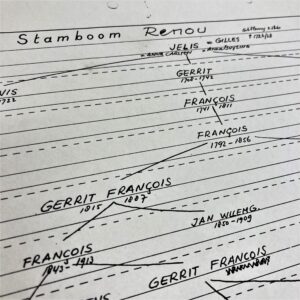 Stamboom Renou
JELIS = GILLES
GERRIT
FRANÇOIS
1741 1811
FRANÇOIS
1792 - 1856
GERRIT FRANÇOIS
1815 1887
JAN WILLEMG.
1850 - 1909
FRANÇOIS
1843 1913
GERRIT FRANÇOIS